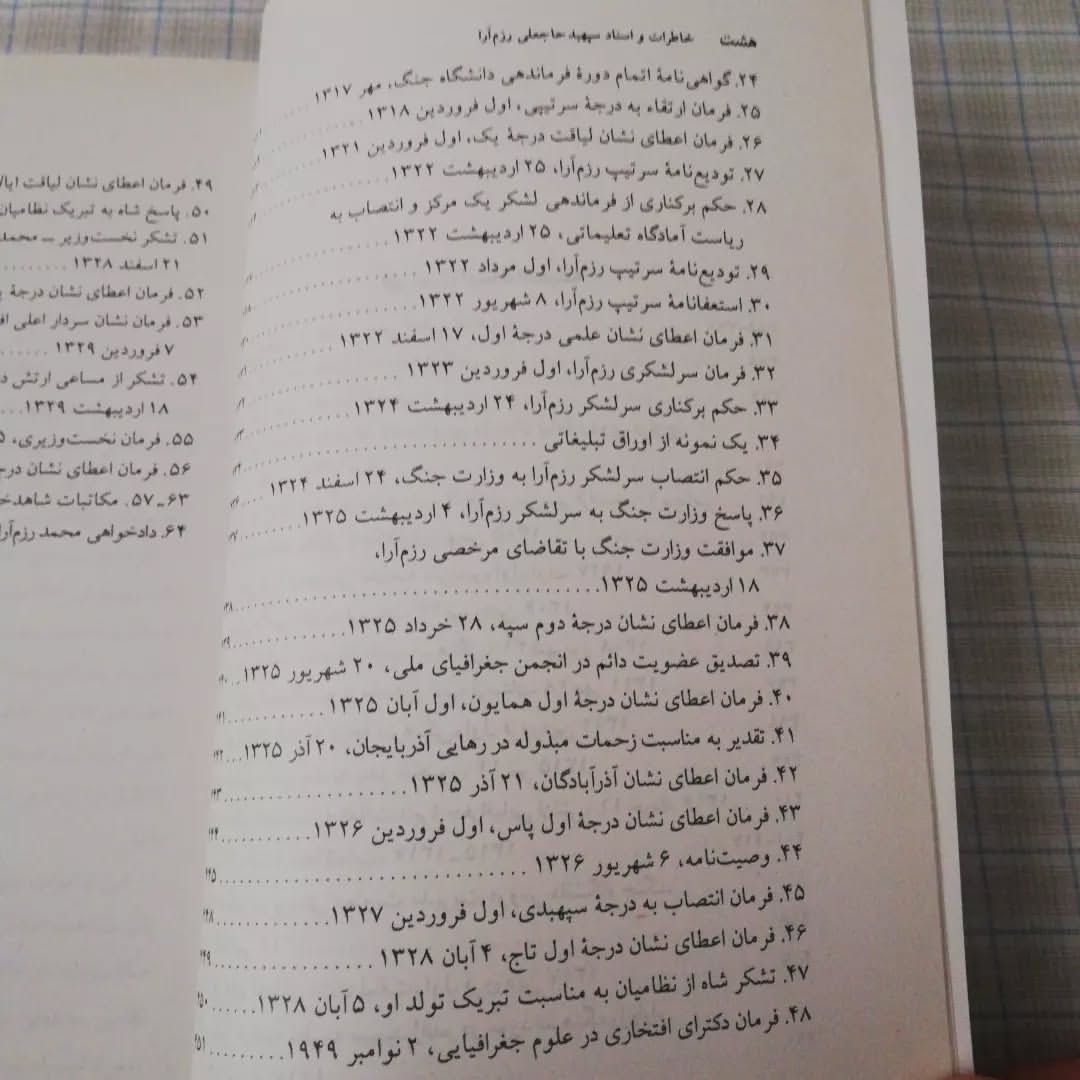 هشت خاطرات و اسناد سپهبد حاجعلی رزم‌آرا
۲۴. گواهی‌نامهٔ اتمام دورهٔ فرماندهی دانشگاه جنگ، مهر ۱۳۱۷
۲۵. فرمان ارتقاء به درجهٔ سرتیپی، اول فروردین ۱۳۱۸
۲۶. فرمان اعطای نشان لیاقت درجهٔ یک، اول فروردین ۱۳۲۱
۲۷. تودیع‌نامهٔ سرتیپ رزم‌آرا، ۲۵ اردیبهشت ۱۳۲۲
۲۸. حکم برکناری از فرماندهی لشکر یک مرکز و انتصاب به
ریاست آمادگاه تعلیماتی، ۲۵ اردیبهشت ۱۳۲۲
۲۹. تودیع‌نامهٔ سرتیپ رزم‌آرا، اول مرداد ۱۳۲۲
۳۰. استعفانامهٔ سرتیپ رزم‌آرا، ۸ شهریور ۱۳۲۲
۳۱. فرمان اعطای نشان علمی درجهٔ اول، ۱۷ اسفند ۱۳۲۲
۳۲. فرمان سرلشکری رزم‌آرا، اول فروردین ۱۳۲۳
۳۳. حکم برکناری سرلشکر رزم‌آرا، ۲۴ اردیبهشت ۱۳۲۴
۳۴. یک نمونه از اوراق تبلیغاتی
۳۵. حکم انتصاب سرلشکر رزم‌آرا به وزارت جنگ، ۲۴ اسفند ۱۳۲۴
۳۶. پاسخ وزارت جنگ به سرلشکر رزم‌آرا، ۴ اردیبهشت ۱۳۲۵
۳۷. موافقت وزارت جنگ با تقاضای مرخصی رزم‌آرا،
۱۸ اردیبهشت ۱۳۲۵
۳۸. فرمان اعطای نشان درجهٔ دوم سپه، ۲۸ خرداد ۱۳۲۵
۳۹. تصدیق عضویت دائم در انجمن جغرافیای ملی، ۲۰ شهریور ۱۳۲۵
۴۰. فرمان اعطای نشان درجهٔ اول همایون، اول آبان ۱۳۲۵
۴۱. تقدیر به مناسبت زحمات مبذوله در رهایی آذربایجان، ۲۰ آذر ۱۳۲۵
۴۲. فرمان اعطای نشان آذرآبادگان، ۲۱ آذر ۱۳۲۵
۴۳. فرمان اعطای نشان درجهٔ اول پاس، اول فروردین ۱۳۲۶
۴۴. وصیت‌نامه، ۶ شهریور ۱۳۲۶
۴۵. فرمان انتصاب به درجهٔ سپهبدی، اول فروردین ۱۳۲۷
۴۶. فرمان اعطای نشان درجهٔ اول تاج، ۴ آبان ۱۳۲۸
۴۷. تشکر شاه از نظامیان به مناسبت تبریک تولد او، ۵ آبان ۱۳۲۸
۴۸. فرمان دکترای افتخاری در علوم جغرافیایی، ۲ نوامبر ۱۹۴۹
۴۹. فرمان اعطای نشان لیاقت
۵۰. پاسخ شاه به تبریک نظامیان
۵۱. تشکر نخست‌وزیر ـ محمد
۲۱ اسفند ۱۳۲۸
۵۲. فرمان اعطای نشان درجهٔ
۵۳. فرمان نشان سردار اعلی
۷ فروردین ۱۳۲۹
۵۴. تشکر از مساعی ارتش
۱۸ اردیبهشت ۱۳۲۹
۵۵. فرمان نخست‌وزیری،
۵۶. فرمان اعطای نشان
۵۷ـ۶۳. مکاتبات
۶۴. دادخواهی محمد رزم‌آرا